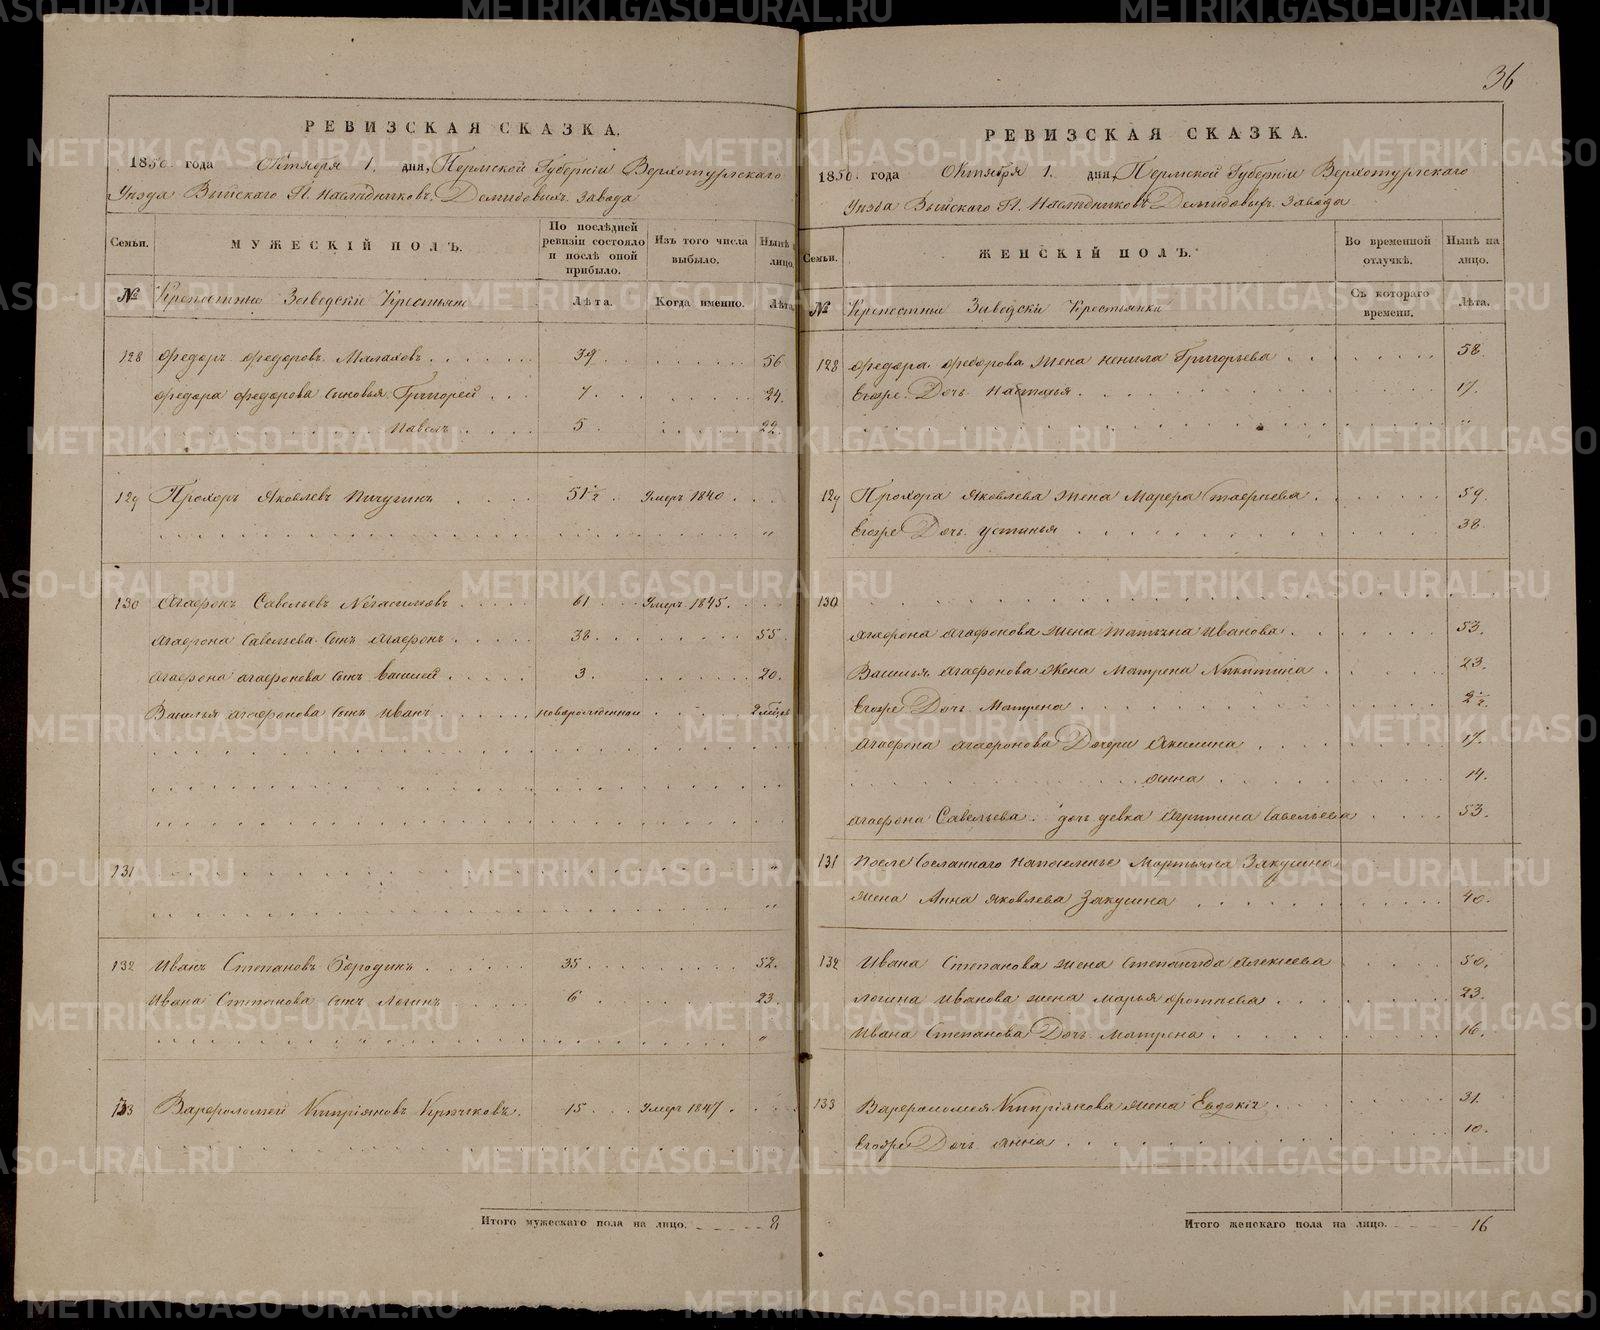 36
РЕВИЗСКАЯ СКАЗКА.
1850. года Октября 1. дня, Пермской Губерніи Верхотурскаго
Уѣзда Выйскаго Гг. Наслѣдниковъ Демидовыхъ завода
Семьи. МУЖЕСКІЙ ПОЛЪ. По послѣдней ревизіи состояло и послѣ оной прибыло. Изъ того числа выбыло. Нынѣ на лицо.
№ Крепостныи Заводскіи Крестьяне Лѣта. Когда именно. Лѣта.
128 Федоръ Федоровъ Малаховъ 39 56
Федора Федорова Сыновья Григорей 7 24.
Павелъ 5 22.
129 Прохоръ Яковлевъ Пичугинъ 51½ Умеръ 1840
"
130 Агафонъ Савельевъ Умеръ 1845. 61
Агафона Савельева Сынъ Агафонъ 38 55
Агафона Агафонова Сынъ Василей 3. 20.
Василья Агафонова Сынъ Иванъ новорожденной 2 мѣсяц
131 "
"
132 Иванъ Степановъ Бородинъ 35 52.
Ивана Степанова Сынъ Логинъ 6 23.
"
133 Варфоломей Кипріяновъ Крючковъ. 15 Умеръ 1847
Итого мужескаго пола на лицо. 8
РЕВИЗСКАЯ СКАЗКА.
1850. года Октября 1. дня, Пермской Губерніи Верхотурскаго
Уѣзда Выйскаго Гг. Наслѣдниковъ Демидовыхъ завода
Семьи. ЖЕНСКІЙ ПОЛЪ. Во временной отлучкѣ. Нынѣ на лицо.
№ Крепостныи Заводскіи Крестьянки Съ котораго времени. Лѣта.
128 Федора Федорова жена Ненила Григорьева 58.
Егоже Дочь Наталья 17.
"
129 Прохора Яковлева жена Марфа 59.
Егоже Дочь Устинья 38
130
Агафона Агафонова жена Татьяна Иванова 53.
Василья Агафонова Жена Матрена Никитина 23.
Егоже Дочь Матрена 2½.
Агафона Агафонова Дочери Акилина 17.
Анна 14.
Агафона Савельева дочь девка Савельева 53.
131 После Сосланнаго на поселенье Мартьяна Закусина
жена Анна Яковлева Закусина 40.
132 Ивана Степанова жена Степанида Алексеева 50.
Логина Иванова жена Марья 23.
Ивана Степанова Дочь Матрена 16.
133 Варфоломея Кипріянова жена Евдокія 31.
Егоже Дочь Анна 10.
Итого женскаго пола на лицо. 16
METRIKI.GASO-URAL.RU